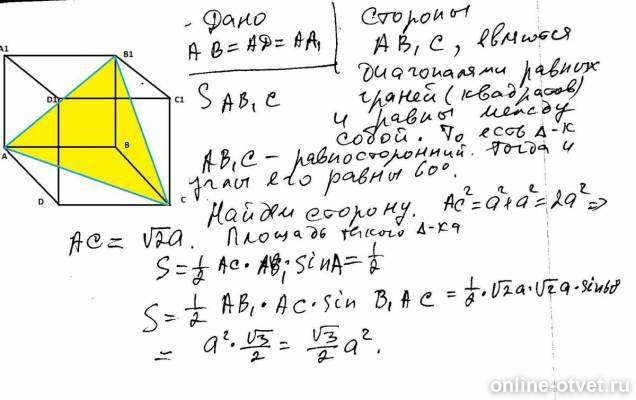 - Дано
AB=AD=AA₁
S AB₁C
Стороны
AB₁C, явлются
диагоналями равных
граней (квадратов)
и равны между
собой. То есть Δ-к
AB₁C - равносторонний. Тогда и
углы его равны 60°.
Найдем сторону. AC²=a²+a²=2a² ⇒
AC= √2a. Площадь такого Δ-ка
S=½ AC·AB₁·sinA=½
S=½ AB₁·AC·sin B₁AC=½·√2a·√2a·sin60
= a²·√3/2=√3/2 a².
A1
B1
D1
C1
A
B
D
C
online-otvet.ru